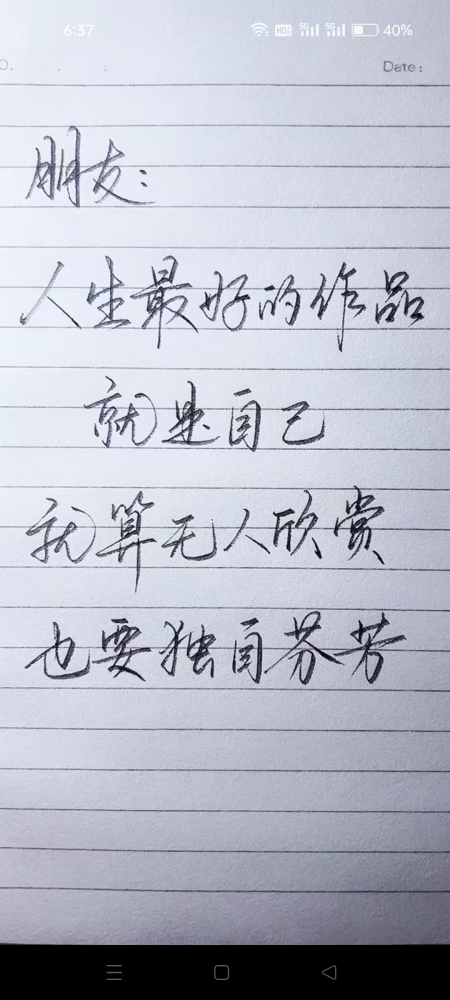 6:37 HD 5G 5G 40%
o. Date:
朋友:
人生最好的作品
就是自己
就算无人欣赏
也要独自芬芳